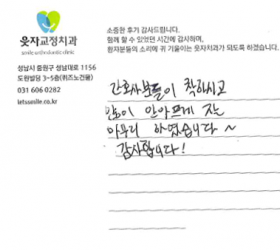 웃자교정치과
smile orthodontic clinic
성남시 중원구 성남대로 1156
도원빌딩 3~5층(퀴즈노건물)
031 606 0282
letssmile.co.kr
소중한 후기 감사드립니다.
함께 할 수 있었던 시간에 감사하며,
환자분들의 소리에 귀 기울이는 웃자치과가 되도록 하겠습니다.
간호사분들이 착하시고
많이 안아프게 잘
마무리 하였습니다~
감사합니다!